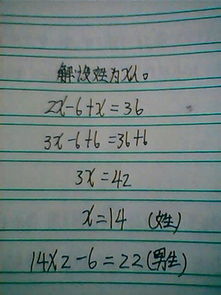 解:设女生为x人。
2x-6+x=36
3x-6+6=36+6
3x=42
x=14 (女生)
14×2-6=22(男生)